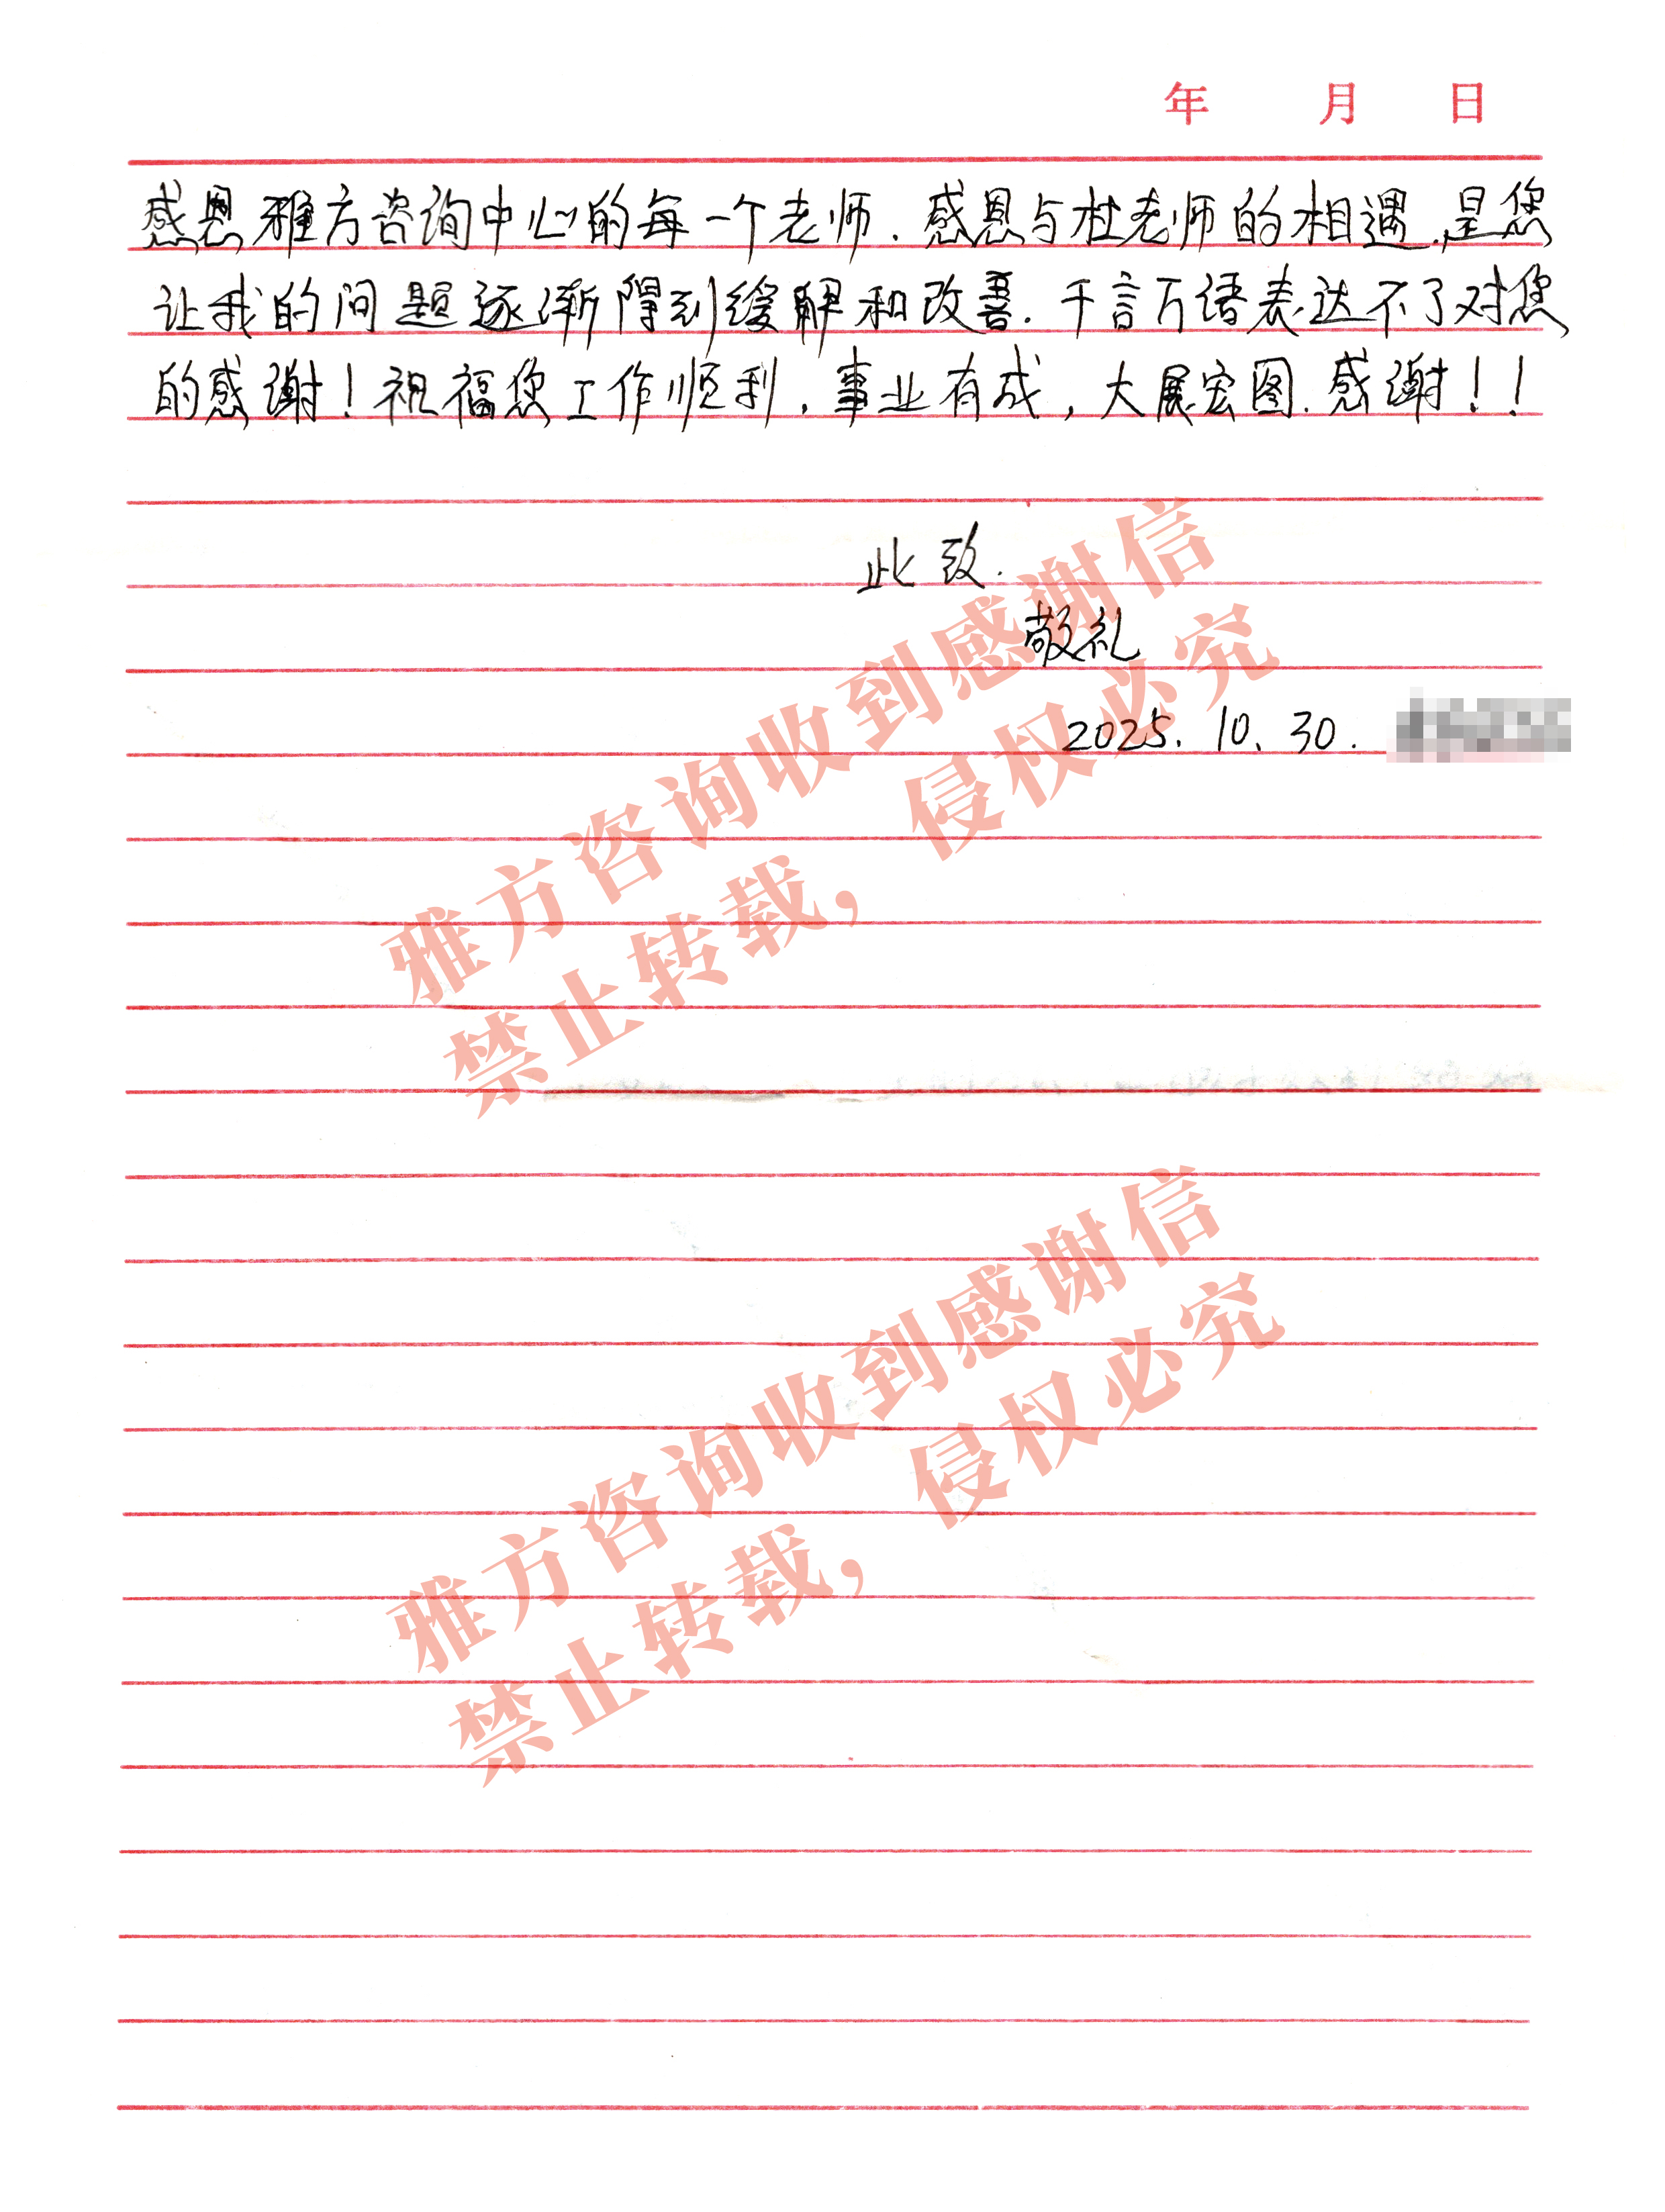 年 月 日
感恩雅方咨询中心的每一个老师.感恩与杜老师的相遇,是您
让我的问题逐渐得到缓解和改善.千言万语表达不了对您
的感谢!祝福您工作顺利,事业有成,大展宏图.感谢!!
此致.
敬礼
2025.10.30.
雅方咨询收到感谢信
禁止转载，侵权必究
雅方咨询收到感谢信
禁止转载，侵权必究